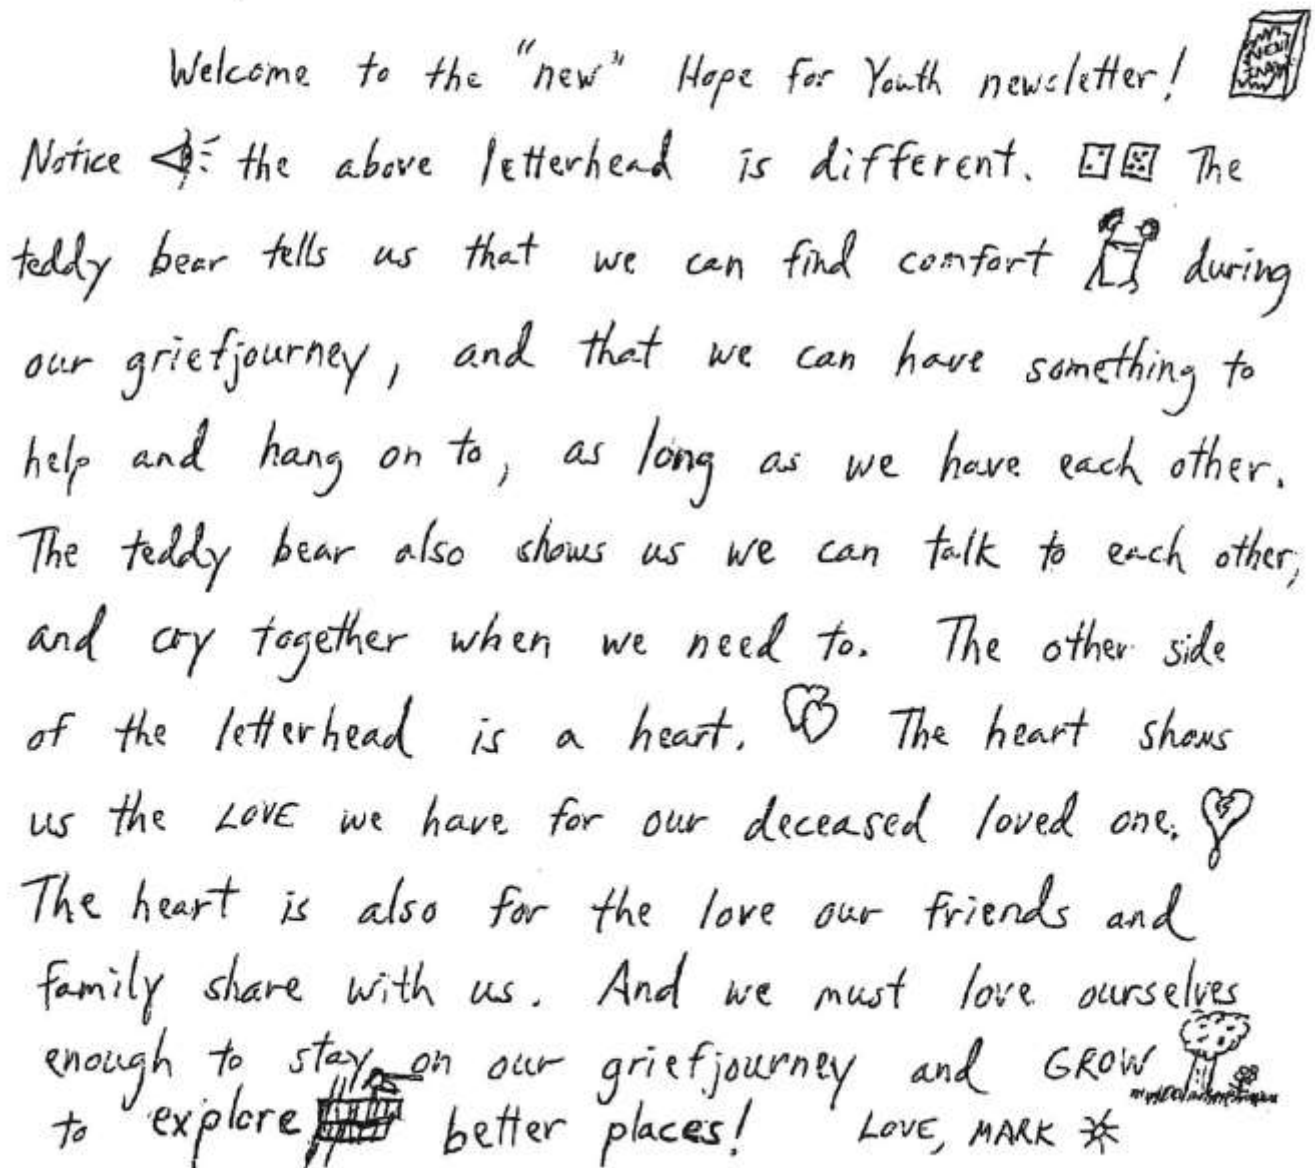 Welcome to the "new" Hope for Youth newsletter! NEW
Notice the above letterhead is different. The
teddy bear tells us that we can find comfort during
our griefjourney, and that we can have something to
help and hang on to, as long as we have each other.
The teddy bear also shows us we can talk to each other,
and cry together when we need to. The other side
of the letterhead is a heart. The heart shows
us the LOVE we have for our deceased loved one.
The heart is also for the love our friends and
family share with us. And we must love ourselves
enough to stay on our griefjourney and GROW
to explore better places! LOVE, MARK